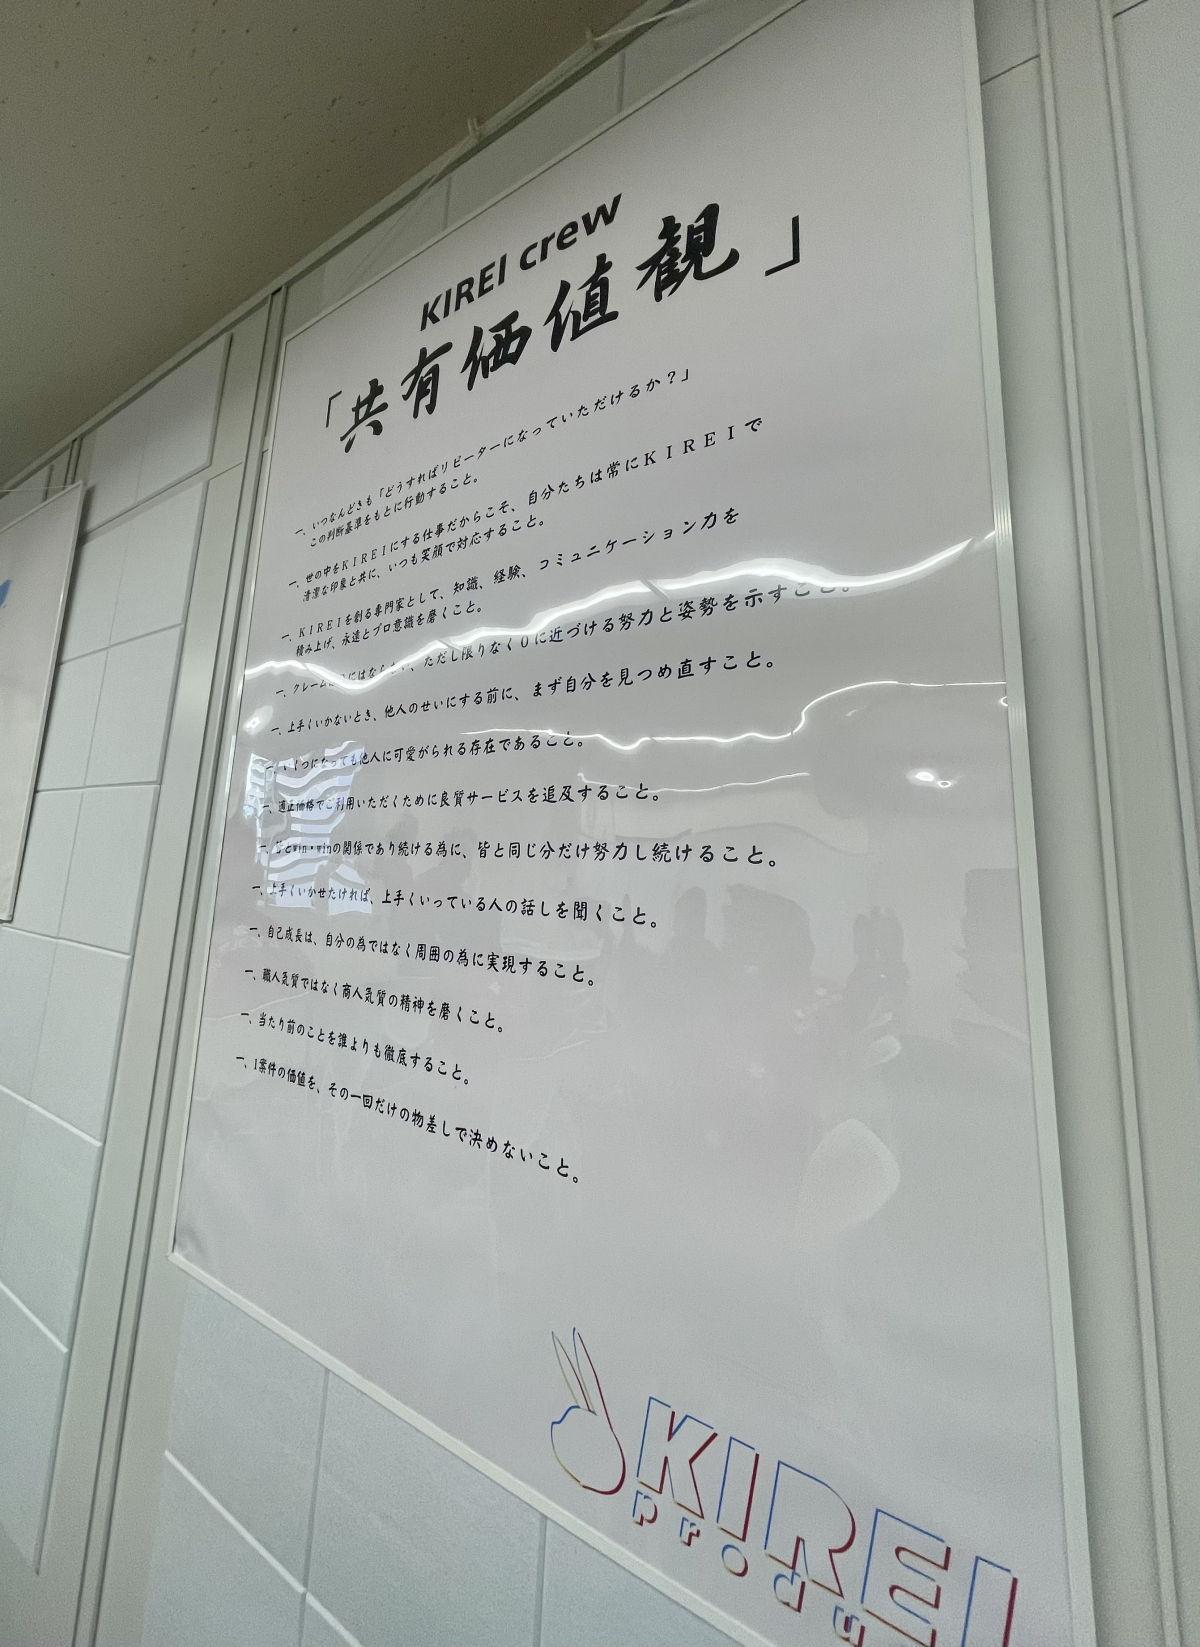 KIREI crew
「共有価値観」
一、いつなんどきも「どうすればリピーターになっていただけるか？」
この判断基準をもとに行動すること。
一、世の中をＫＩＲＥＩにする仕事だからこそ、自分たちは常にＫＩＲＥＩで
清潔な印象と共に、いつも笑顔で対応すること。
一、ＫＩＲＥＩを創る専門家として、知識、経験、コミュニケーション力を
積み上げ、永遠とプロ意識を磨くこと。
一、クレームは0にはならない、ただし限りなく０に近づける努力と姿勢を示すこと。
一、上手くいかないとき、他人のせいにする前に、まず自分を見つめ直すこと。
一、いくつになっても他人に可愛がられる存在であること。
一、適正価格でご利用いただくために良質サービスを追及すること。
一、皆とwin・winの関係であり続ける為に、皆と同じ分だけ努力し続けること。
一、上手くいかせたければ、上手くいっている人の話しを聞くこと。
一、自己成長は、自分の為ではなく周囲の為に実現すること。
一、職人気質ではなく商人気質の精神を磨くこと。
一、当たり前のことを誰よりも徹底すること。
一、1案件の価値を、その一回だけの物差しで決めないこと。
KIREI
produ